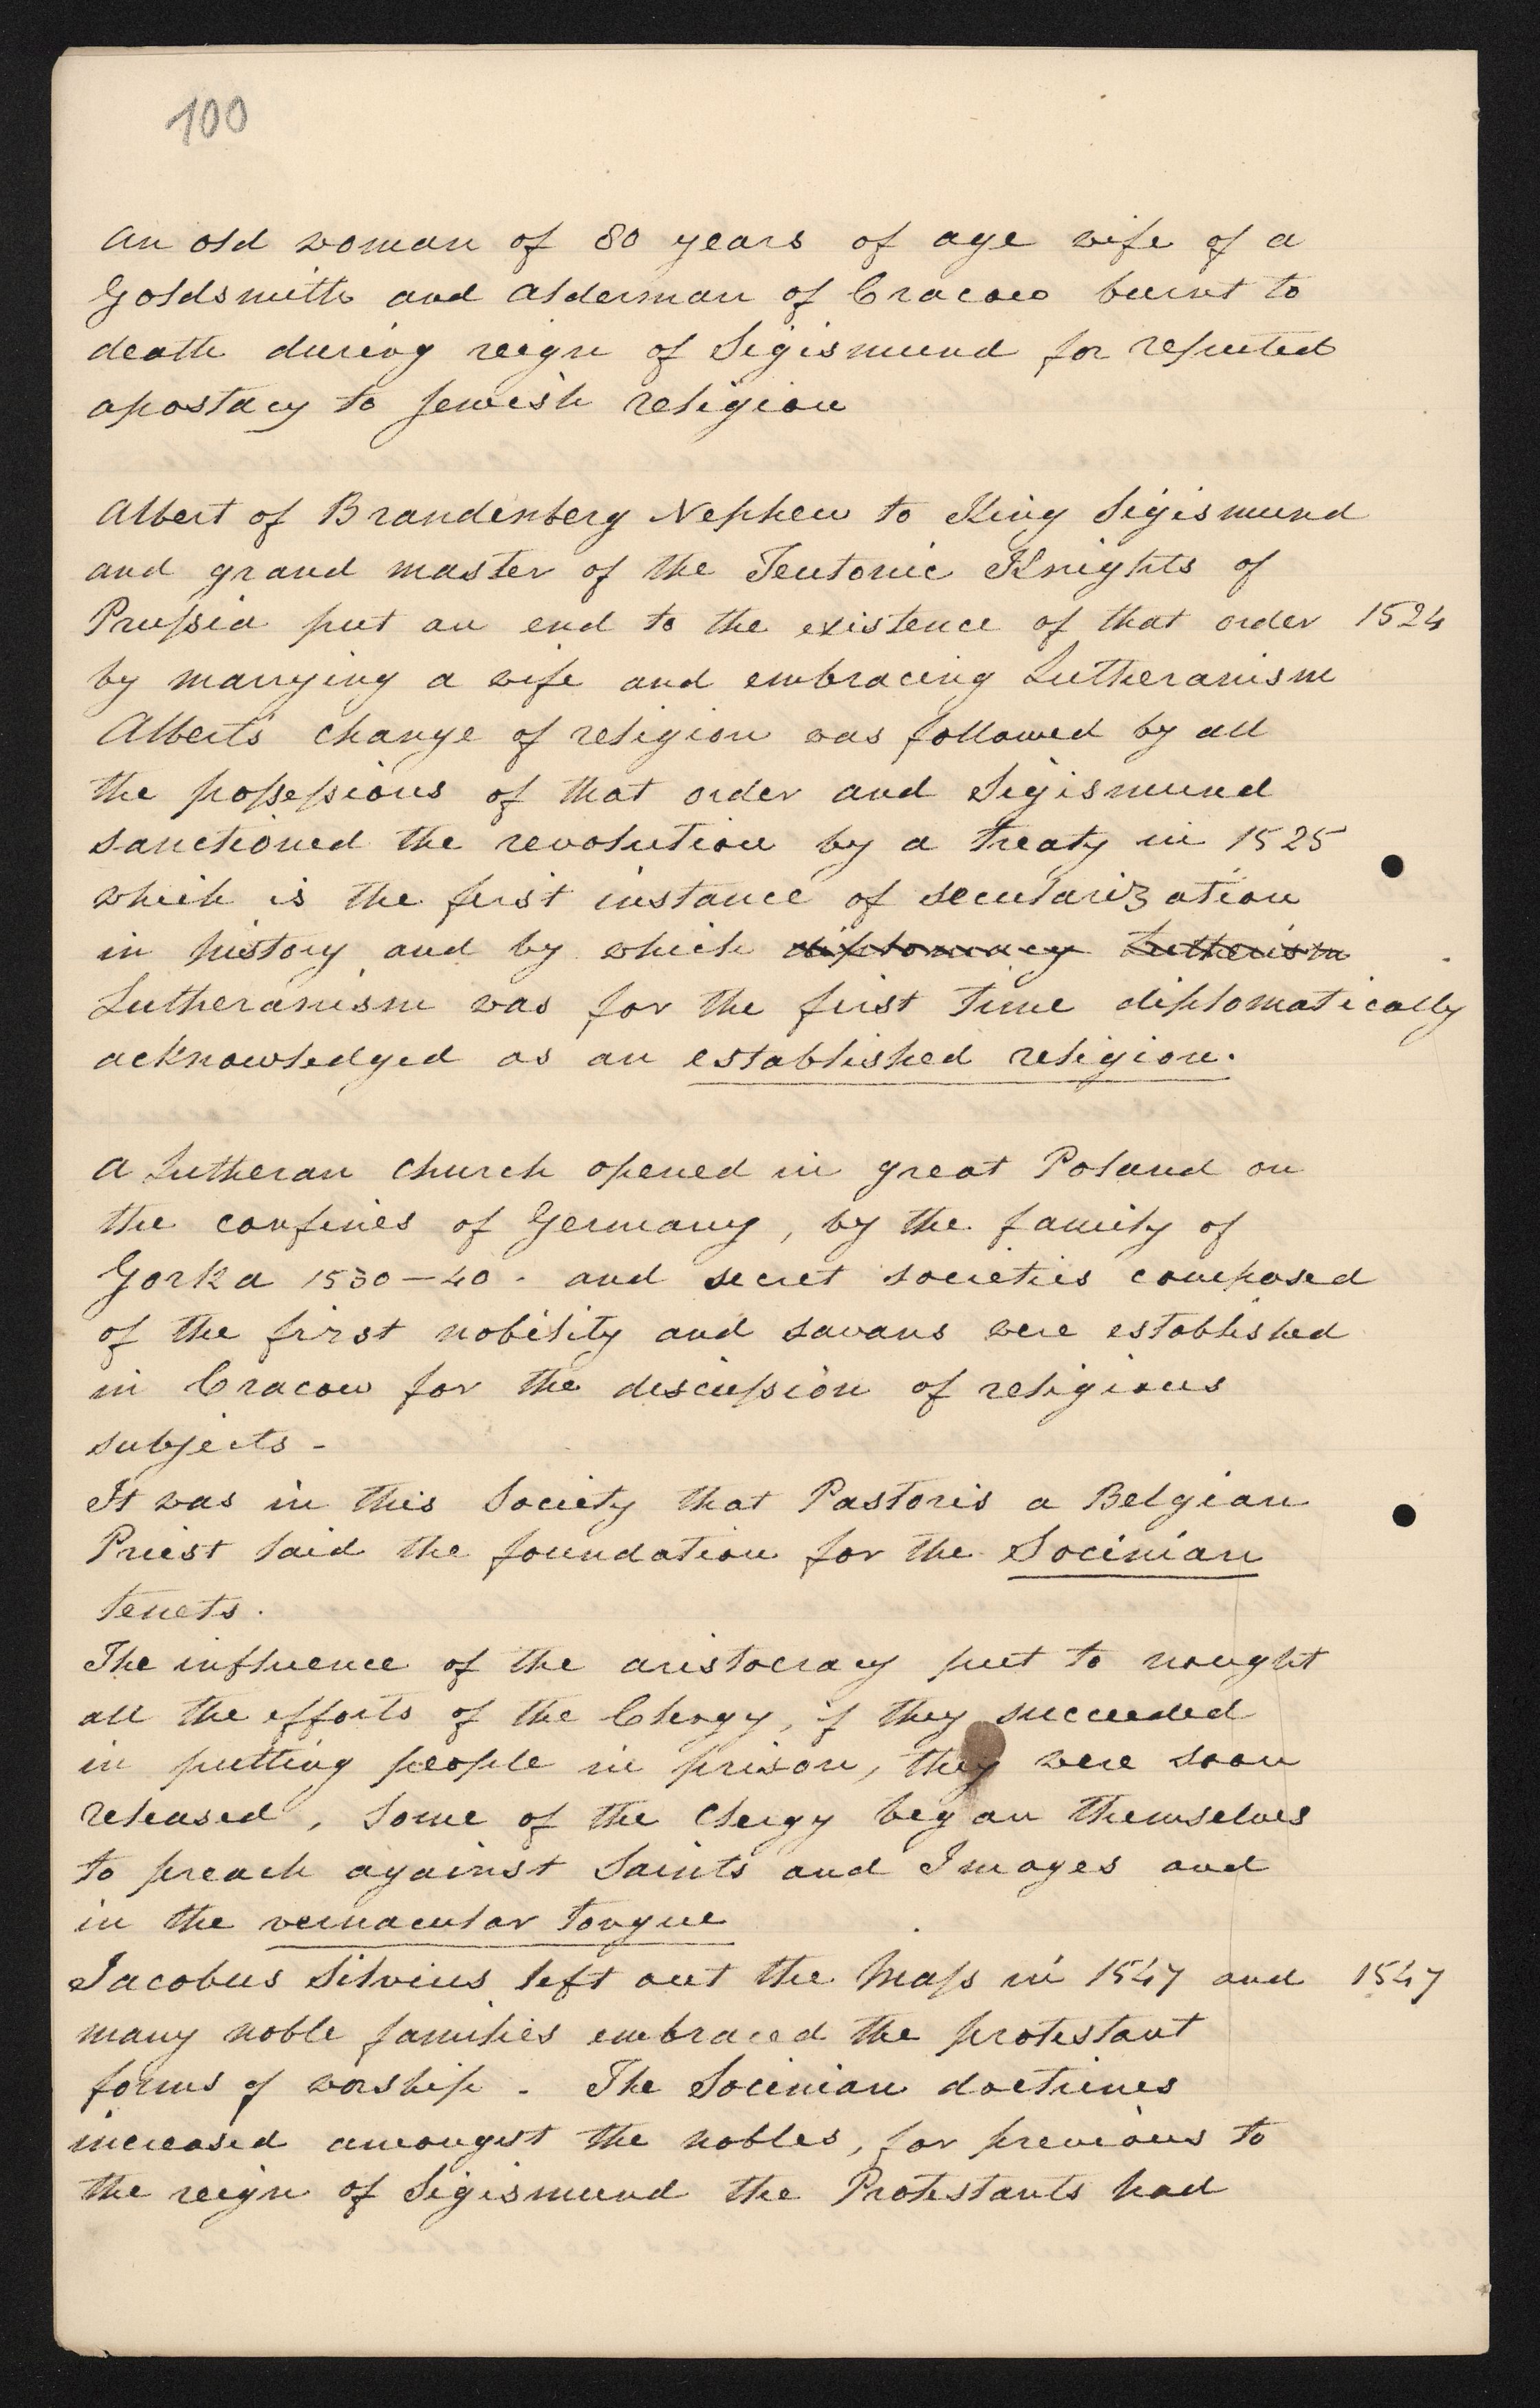 100
An old woman of 80 years of age wife of a
Goldsmith and Alderman of Cracow burnt to
death during reign of Sigismund for reputed
apostacy to Jewish religion
Albert of Brandenberg Nephew to King Sigismund
and grand master of the Teutonic Knights of
Prussia put an end to the existence of that order 1524
by marrying a wife and embracing Lutheranism
Albert's change of religion was followed by all
the possessions of that order and Sigismund
sanctioned the revolution by a treaty in 1525
which is the first instance of secularization
in history and by which diplomacy Lutherism
Lutheranism was for the first time diplomatically
acknowledged as an established religion.
A Lutheran church opened in great Poland on
the confines of Germany, by the family of
Gorka 1530-40. and secret societies composed
of the first nobility and savans were established
in Cracow for the discussion of religious
subjects -
It was in this Society that Pastoris a Belgian
Priest laid the foundation for the Socinian
tenets.
The influence of the aristocracy put to nought
all the efforts of the Clergy, if they succeeded
in putting people in prison, they were soon
released, Some of the Clergy began themselves
to preach against Saints and Images and
in the vernacular tongue
Jacobus Silvius left out the Mass in 1547 and 1547
many noble families embraced the protestant
forms of worship - The Socinian doctrines
increased amongst the nobles, for previous to
the reign of Sigismund the Protestants had